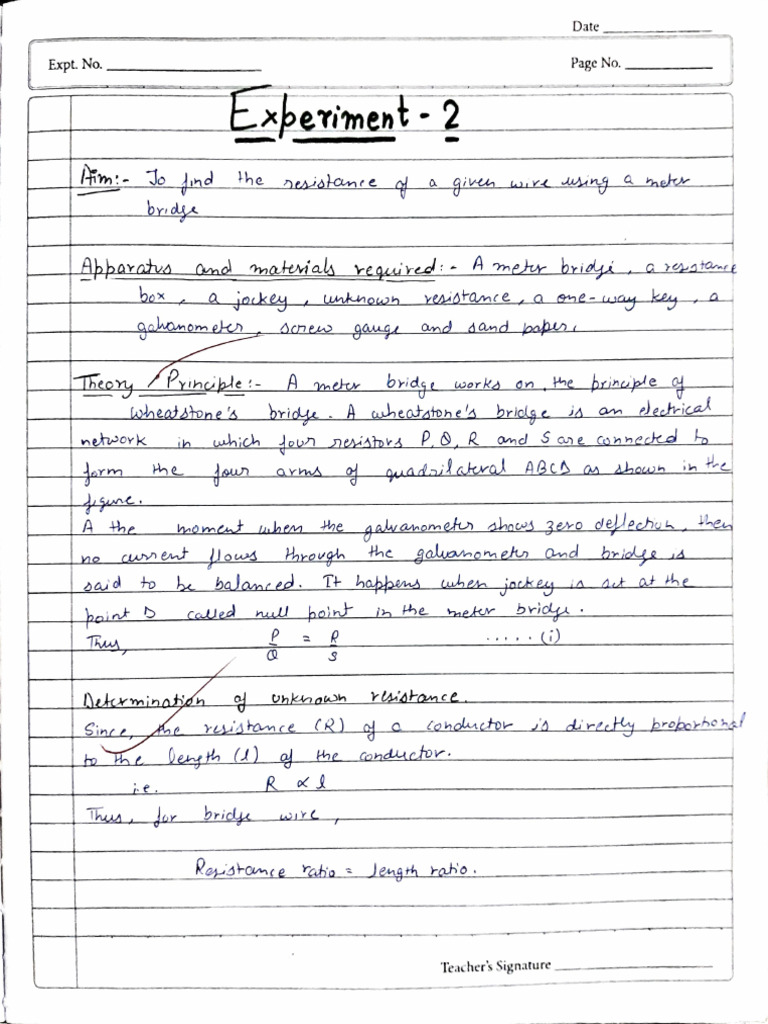 Date
Expt. No.
Page No.
Experiment - 2
Aim:- To find the resistance of a given wire using a meter
bridge
Apparatus and materials required:- A meter bridge, a resistance
box, a jockey, unknown resistance, a one-way key, a
galvanometer, screw gauge and sand paper.
Theory / Principle:- A meter bridge works on the principle of
wheatstone's bridge. A wheatstone's bridge is an electrical
network in which four resistors P, Q, R and S are connected to
form the four arms of quadrilateral ABCD as shown in the
figure.
A the moment when the galvanometer shows zero deflection, then
no current flows through the galvanometer and bridge is
said to be balanced. It happens when jockey is set at the
point D called null point in the meter bridge.
Thus, P/Q = R/S .....(i)
Determination of unknown resistance.
Since, the resistance (R) of a conductor is directly proportional
to the length (l) of the conductor.
i.e. R ∝ l
Thus, for bridge wire,
Resistance ratio = length ratio.
Teacher's Signature